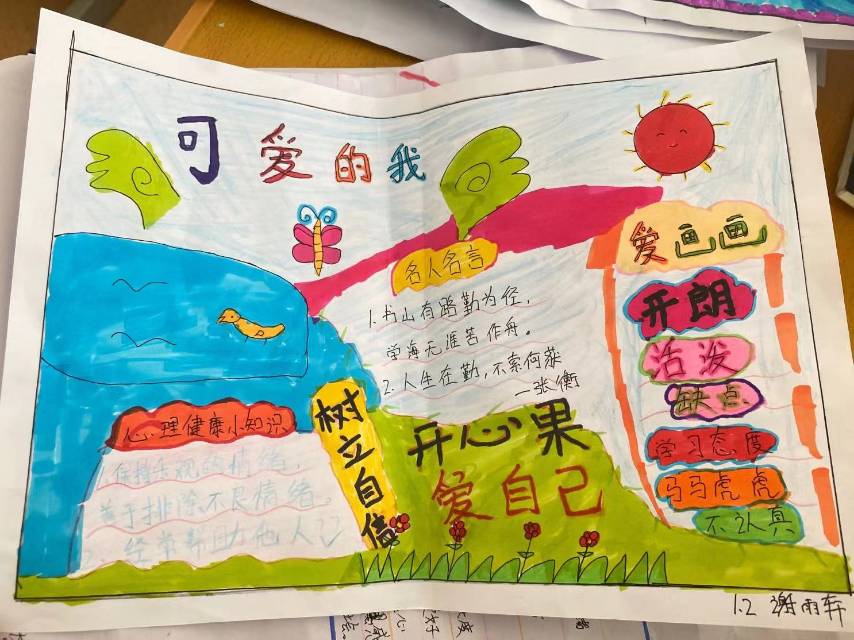 可爱的我
爱画画
名人名言
1.书山有路勤为径，
学海无涯苦作舟。
2.人生在勤，不索何获
—张衡
开朗
活泼
缺点
学习态度
马马虎虎
不认真
心理健康小知识
1.保持乐观的情绪，
善于排除不良情绪。
2. 经常帮助他人
树立自信
开心果
爱自己
1.2 谢雨